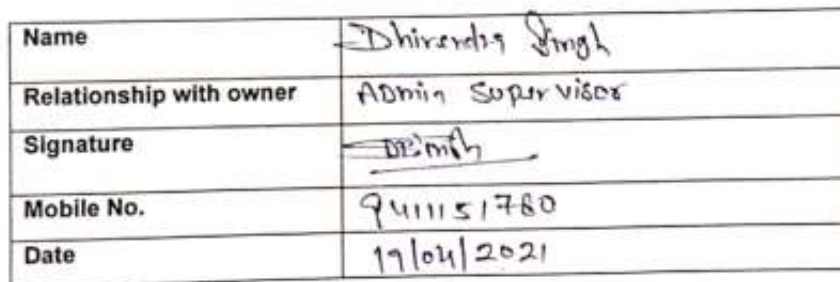 Name Dhirendra Singh
Relationship with owner Admin Supervisor
Signature DSingh
Mobile No. 9411151780
Date 19/04/2021